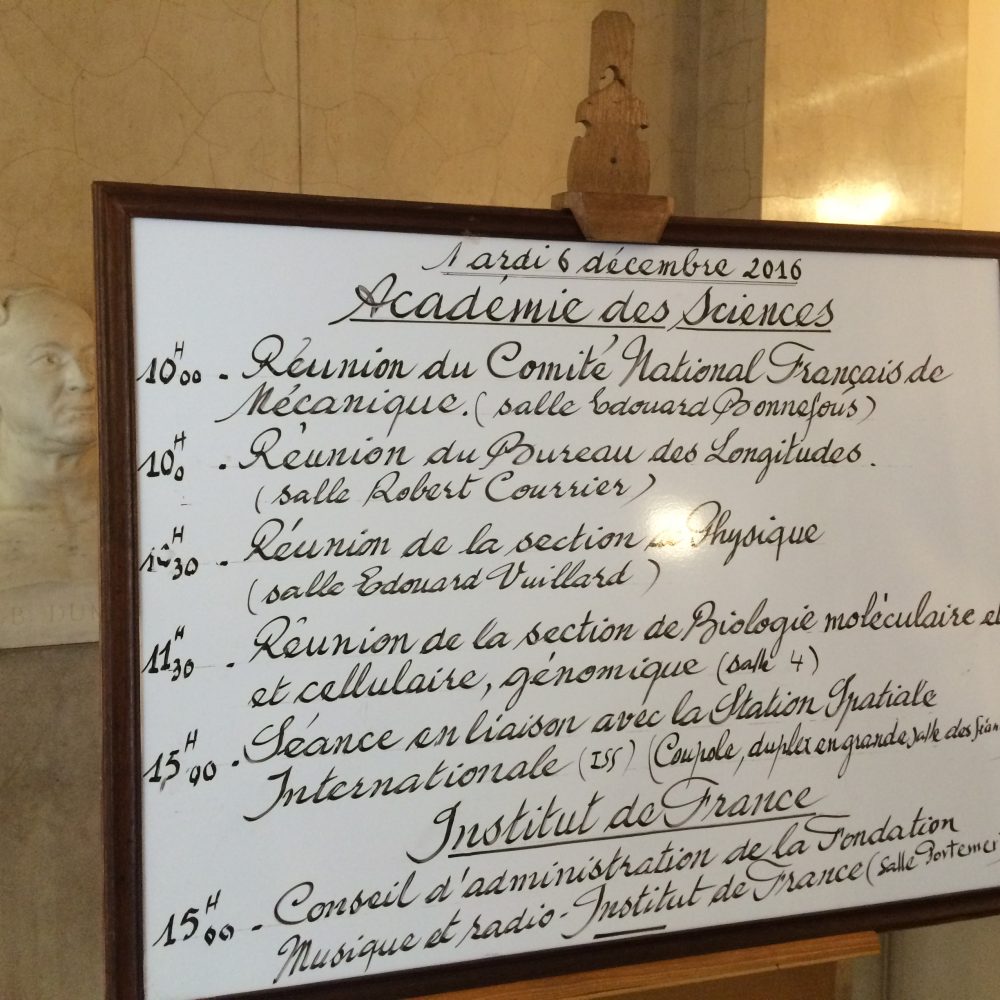 Mardi 6 décembre 2016
Académie des Sciences
10H00 - Réunion du Comité National Français de
Mécanique. (salle Edouard Bonnefous)
10H0 - Réunion du Bureau des Longitudes.
(salle Robert Courrier)
H30 - Réunion de la section de Physique
(salle Edouard Vuillard)
11H30 - Réunion de la section de Biologie moléculaire et
et cellulaire, génomique (salle 4)
15H00 - Séance en liaison avec la Station Spatiale
Internationale (ISS) (Coupole, duplex en grande salle des Séan
Institut de France
15H00 - Conseil d'administration de la Fondation
Musique et radio - Institut de France (salle Portemer